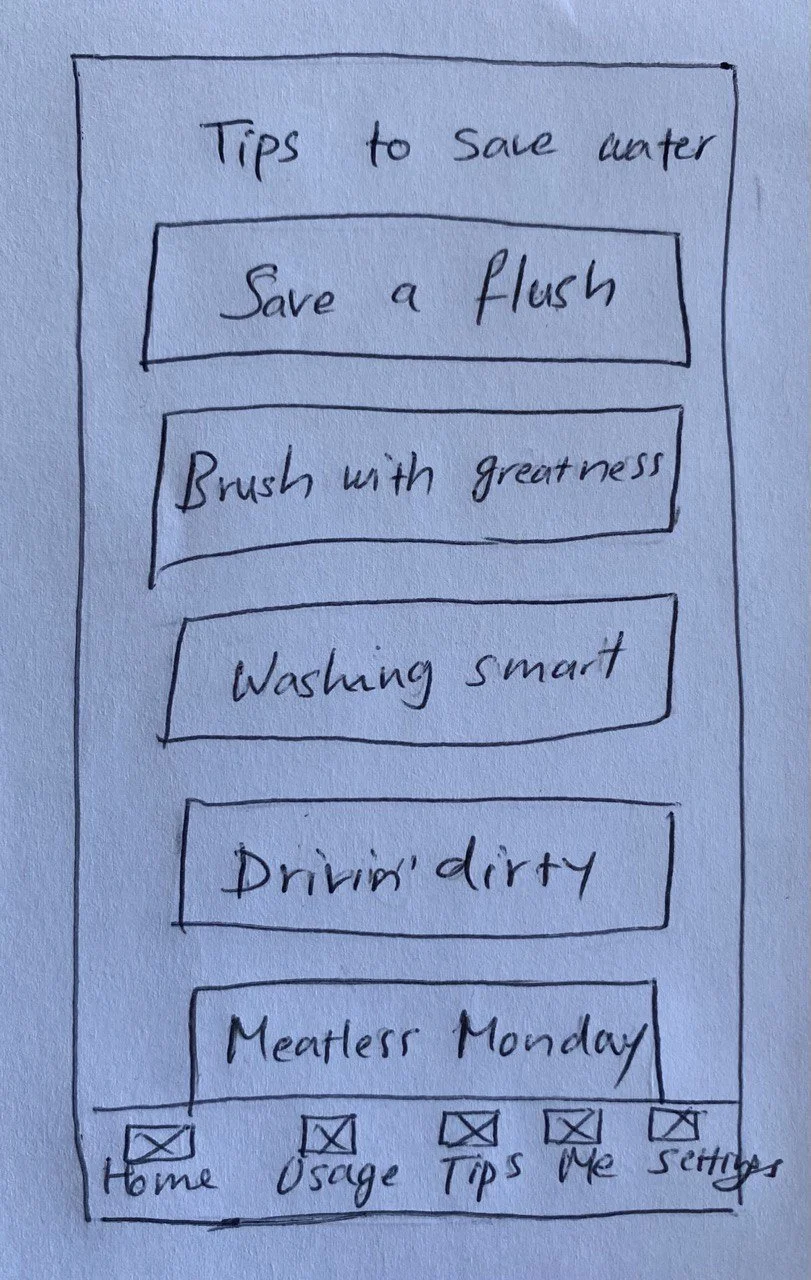 Tips to save water
Save a flush
Brush with greatness
Washing smart
Drivin' dirty
Meatless Monday
Home Usage Tips Me Settings